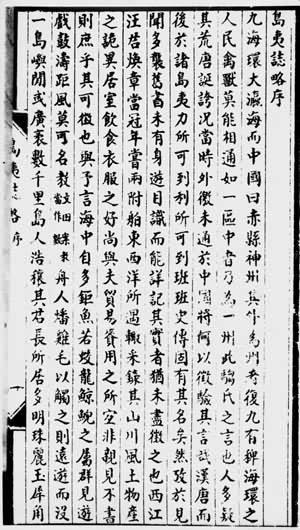 島夷誌略序
九海環大瀛海而中國曰赤縣神州其外為州者復九有裨海環之
人民禽獸莫能相通如一區中者乃為一州此騶氏之言也人多疑
其荒唐誕誇況當時外徼未通於中國將何以徵驗其言哉漢唐而
後於諸島夷力所可到利所可到班班史傳固有其名矣然攷於見
聞多襲舊書未有身遊目識而能詳記其實者猶未盡徵之也西江
汪君煥章當冠年嘗兩附舶東西洋所過輒采錄其山川風土物產
之詭異居室飲食衣服之好尚與夫貿易賫用之所宜非親見不書
則庶乎其可徵也與予言海中自多鉅魚若蛟龍鯨鯢之屬群見遊
戲鼓濤距風莫可名數舟人燔雞毛以觸之則遠遊而沒
一島嶼間或廣袤數千里島人浩穰其君長所居多明珠麗玉犀角
島夷誌略 序